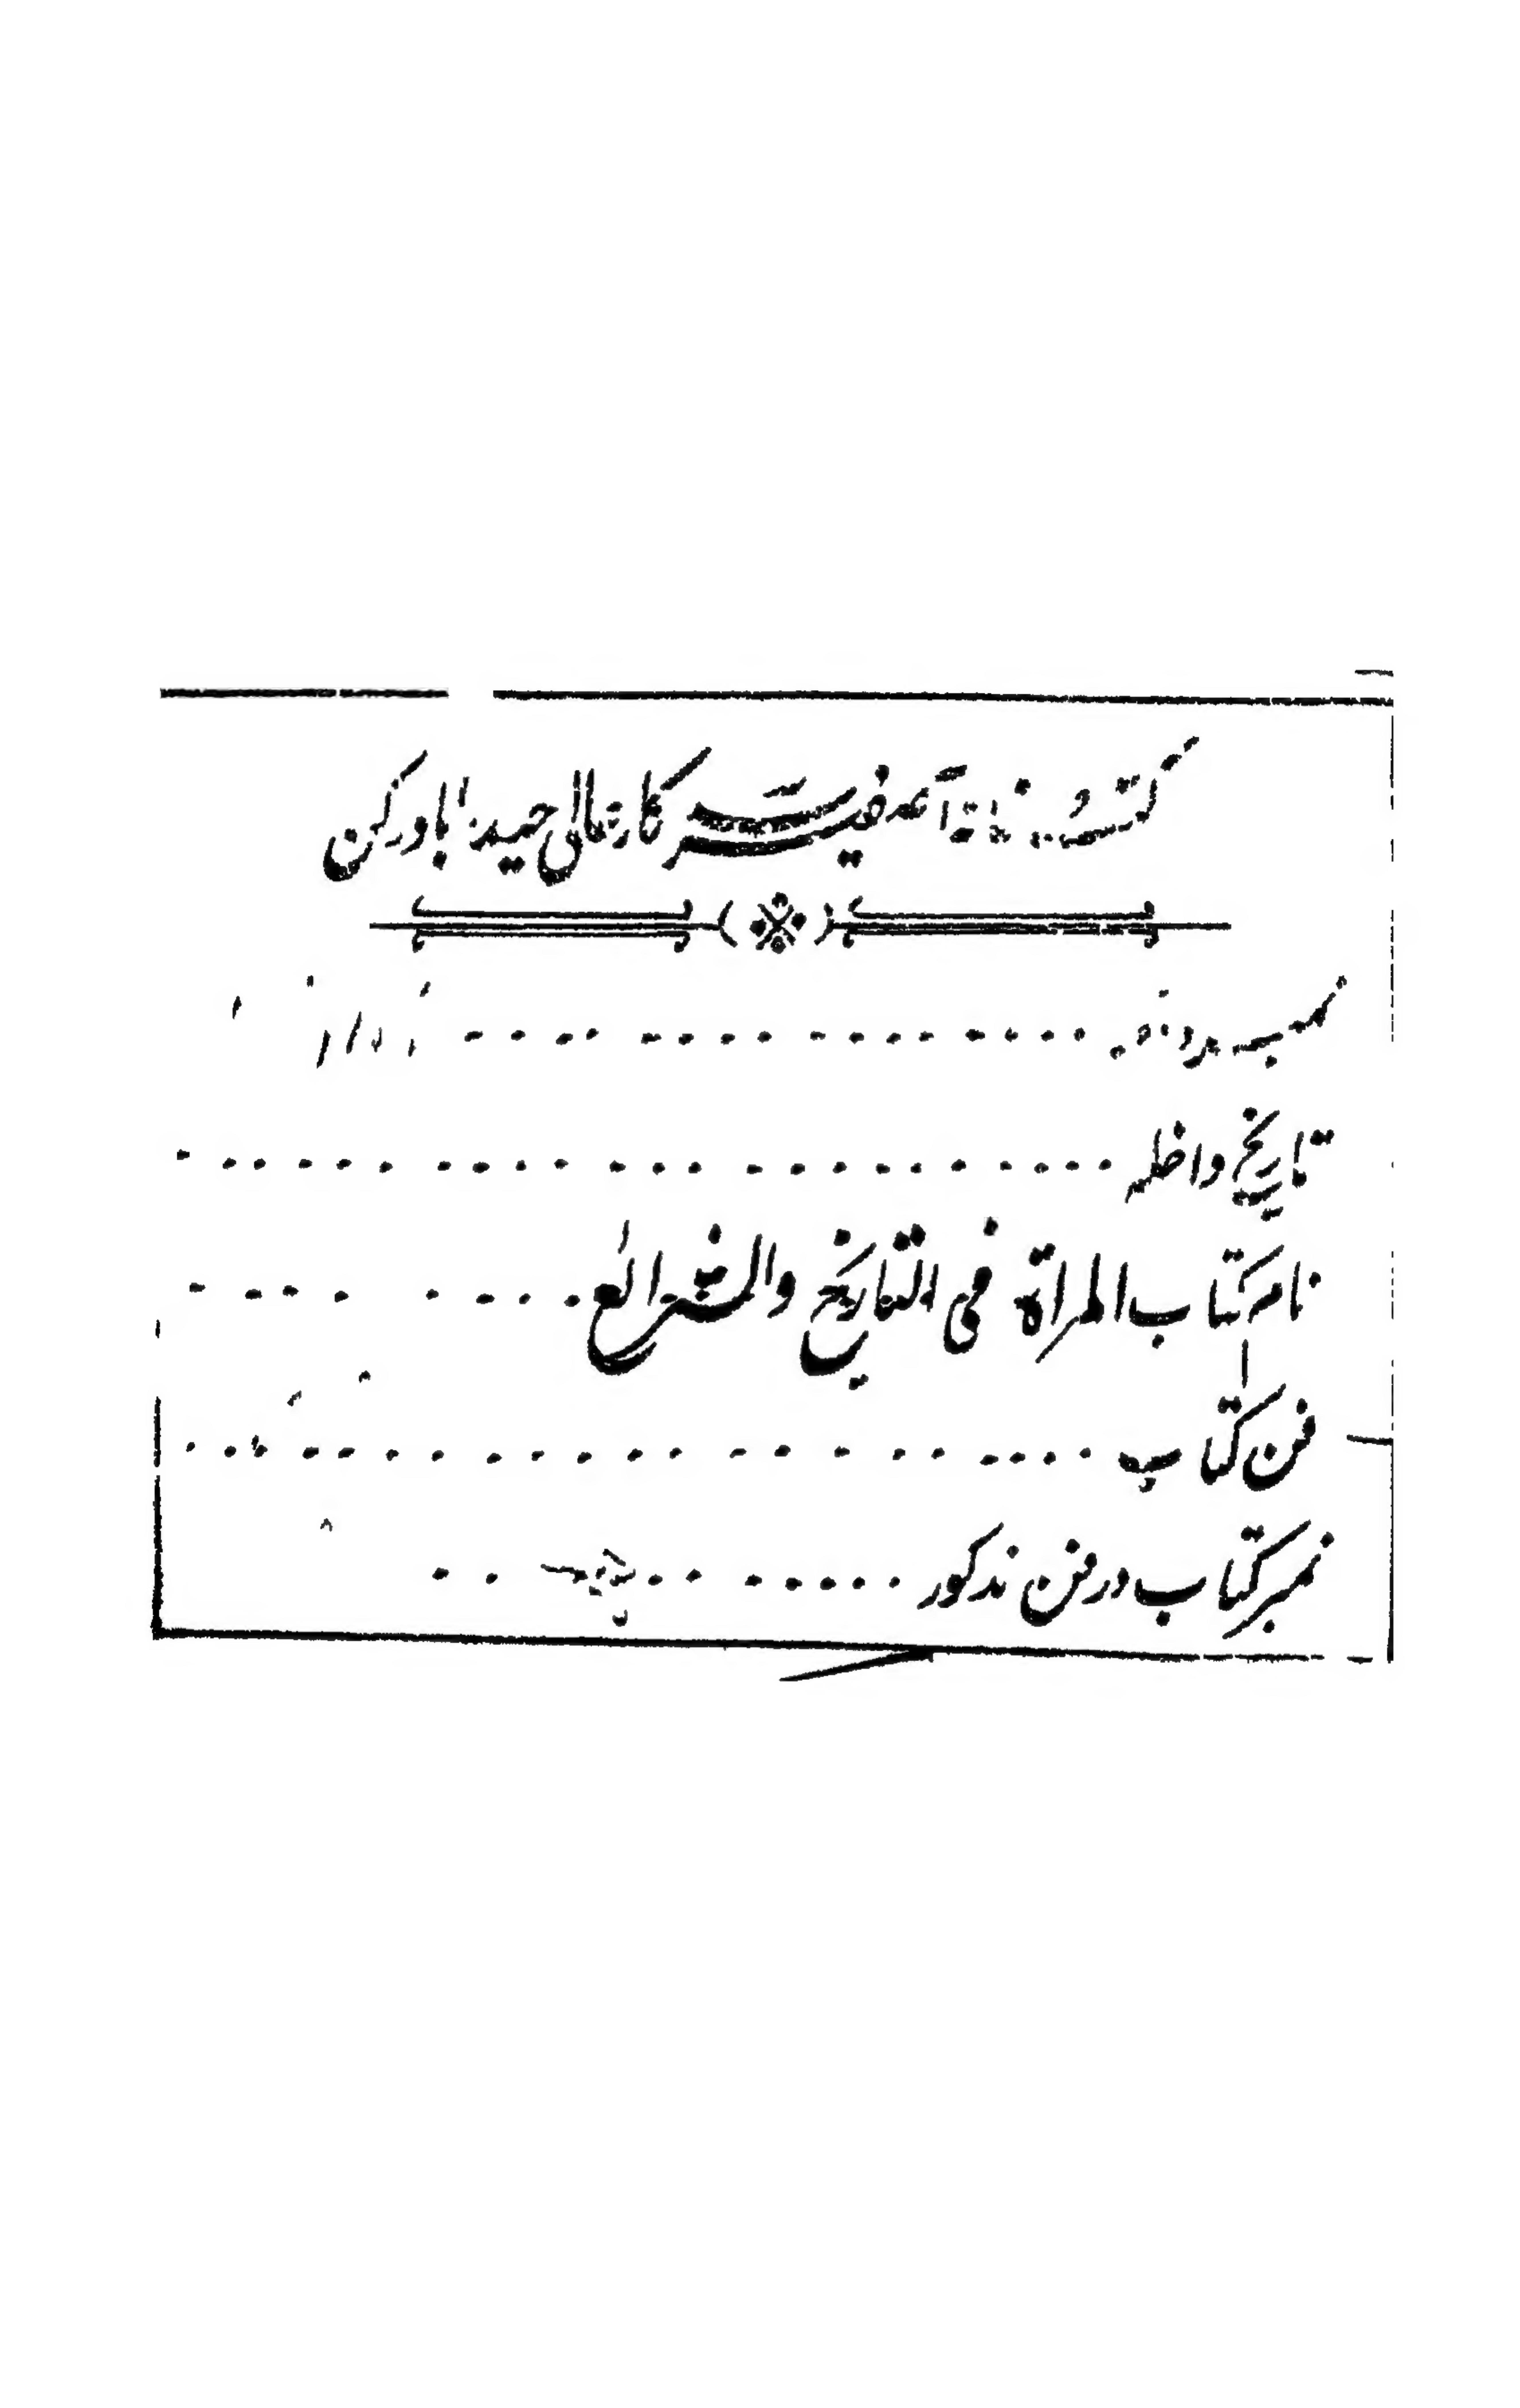 کتب خانه آصفیه سرکار عالی حیدرآباد دکن
تاریخ داخله
نام کتاب المرأة فی التاریخ والشرائع
فن کتاب
نمبر کتاب در فن مذکور